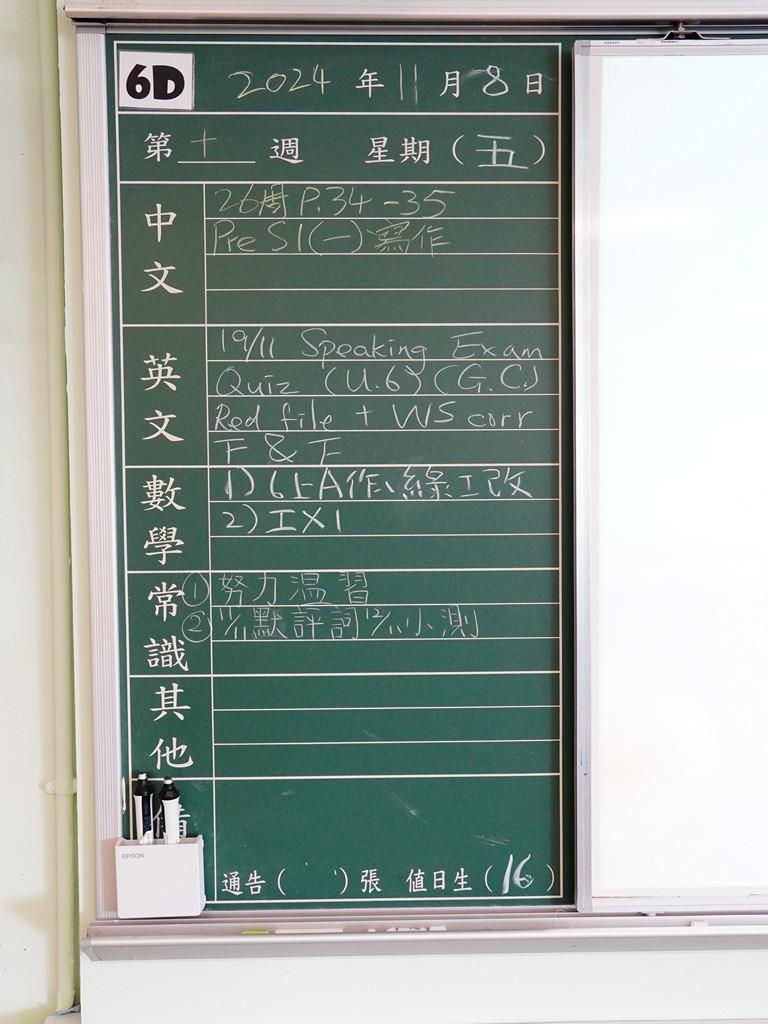 6D 2024 年 11 月 8 日
第 十 週 星期 (五)
中文
26周 P.34-35
Pre S1 (一) 寫作
英文
19/11 Speaking Exam
Quiz (U.6) (G.C.)
Red file + WS corr
F & F
數學
1) 6上A作、綠工改
2) 工X1
常識
① 努力温習
② 11/11默評詞 12/11小測
其他
EPSON
通告 ( ) 張 值日生 (16)